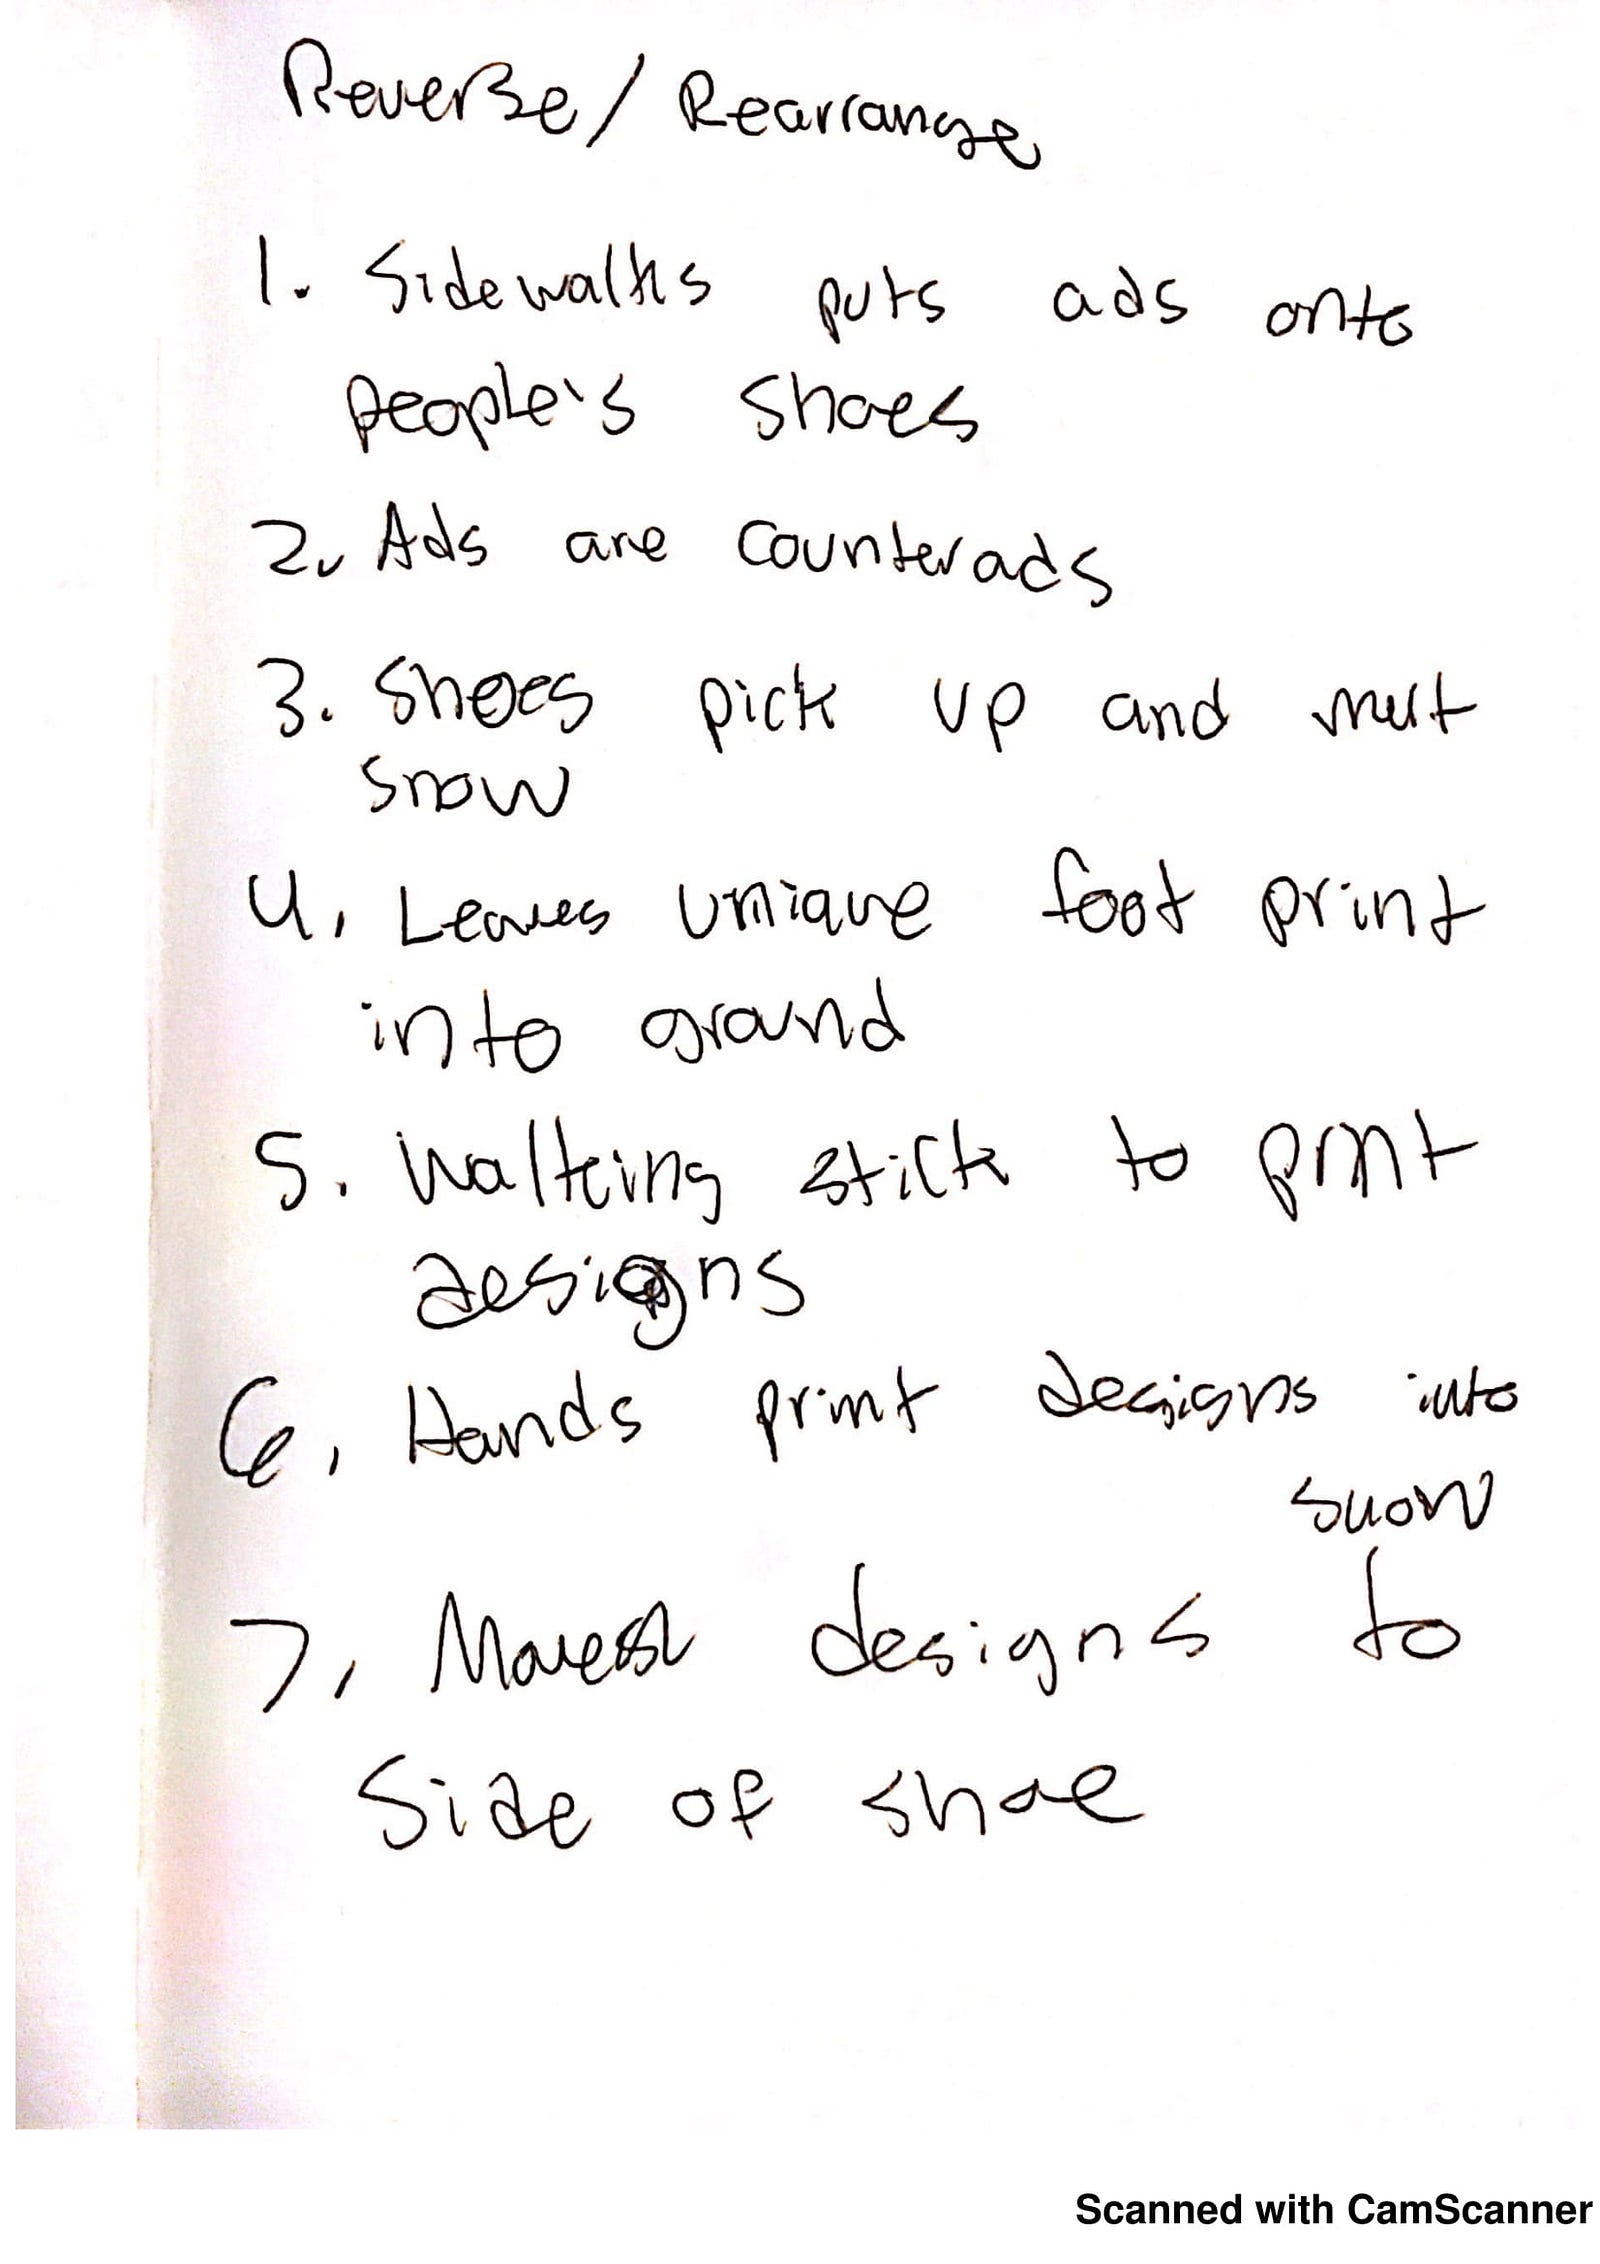 Reverse/Rearrange
1. Sidewalks puts ads onto
people's shoes
2. Ads are counterads
3. Shoes pick up and melt
snow
4. Leaves unique foot print
into ground
5. Walking stick to print
designs
6. Hands print designs into
snow
7. designs to
side of shoe
Scanned with CamScanner